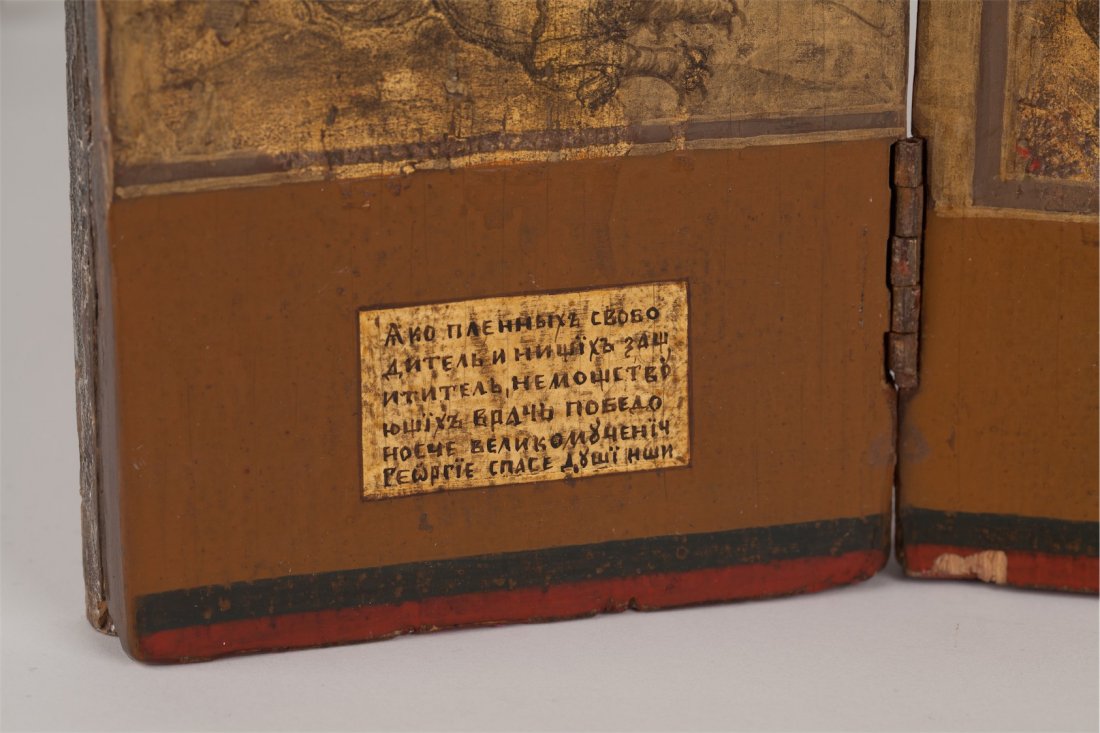 Ѧко пленныхъ свобо
дитель и нишїхъ защ
ититель, немошство
юшїхъ врачь победо
носче великомученіч
Геѡргїе спасе душї нши